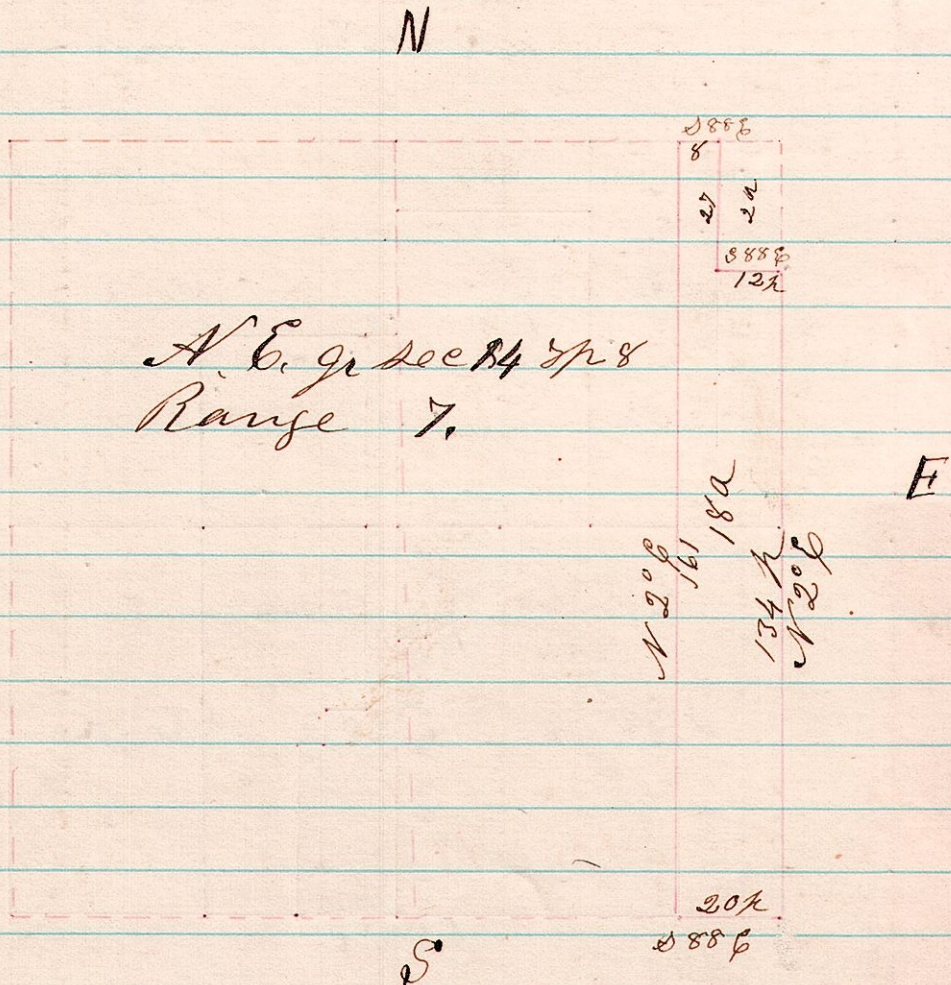 N
S88E
8
27
2a
S88E
12p
N. E. qr Sec 14 Tp 8
Range 7.
E
18a
N 2° E
161
134 p
N 2° E
20p
S88E
S